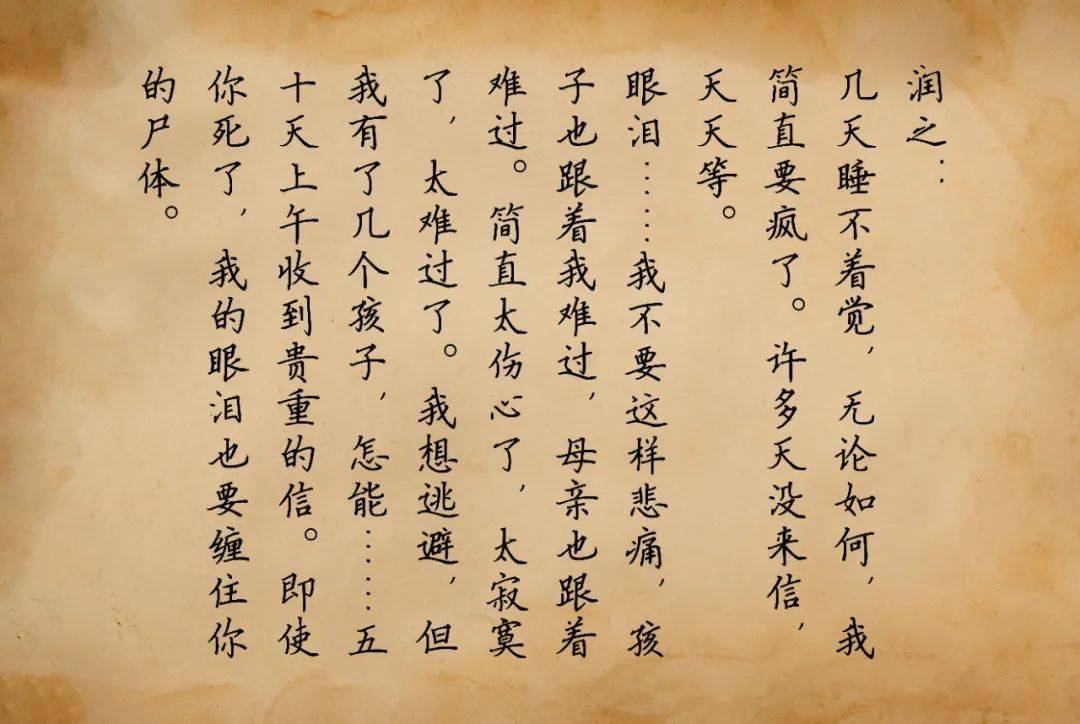 润之：
几天睡不着觉，无论如何，我
简直要疯了。许多天没来信，
天天等。
眼泪……我不要这样悲痛，孩
子也跟着我难过，母亲也跟着
难过。简直太伤心了，太寂寞
了，太难过了。我想逃避，但
我有了几个孩子，怎能……五
十天上午收到贵重的信。即使
你死了，我的眼泪也要缠住你
的尸体。